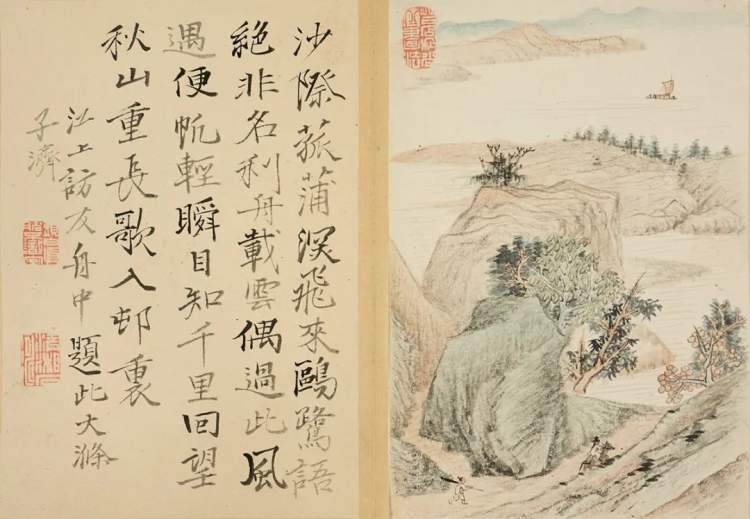 沙際菰蒲深飛來鷗鷺語
絕非名利舟載雲偶過此風
遇便帆輕瞬目知千里回望
秋山重長歌入邨裏
江上訪友舟中題此大滌
子濟